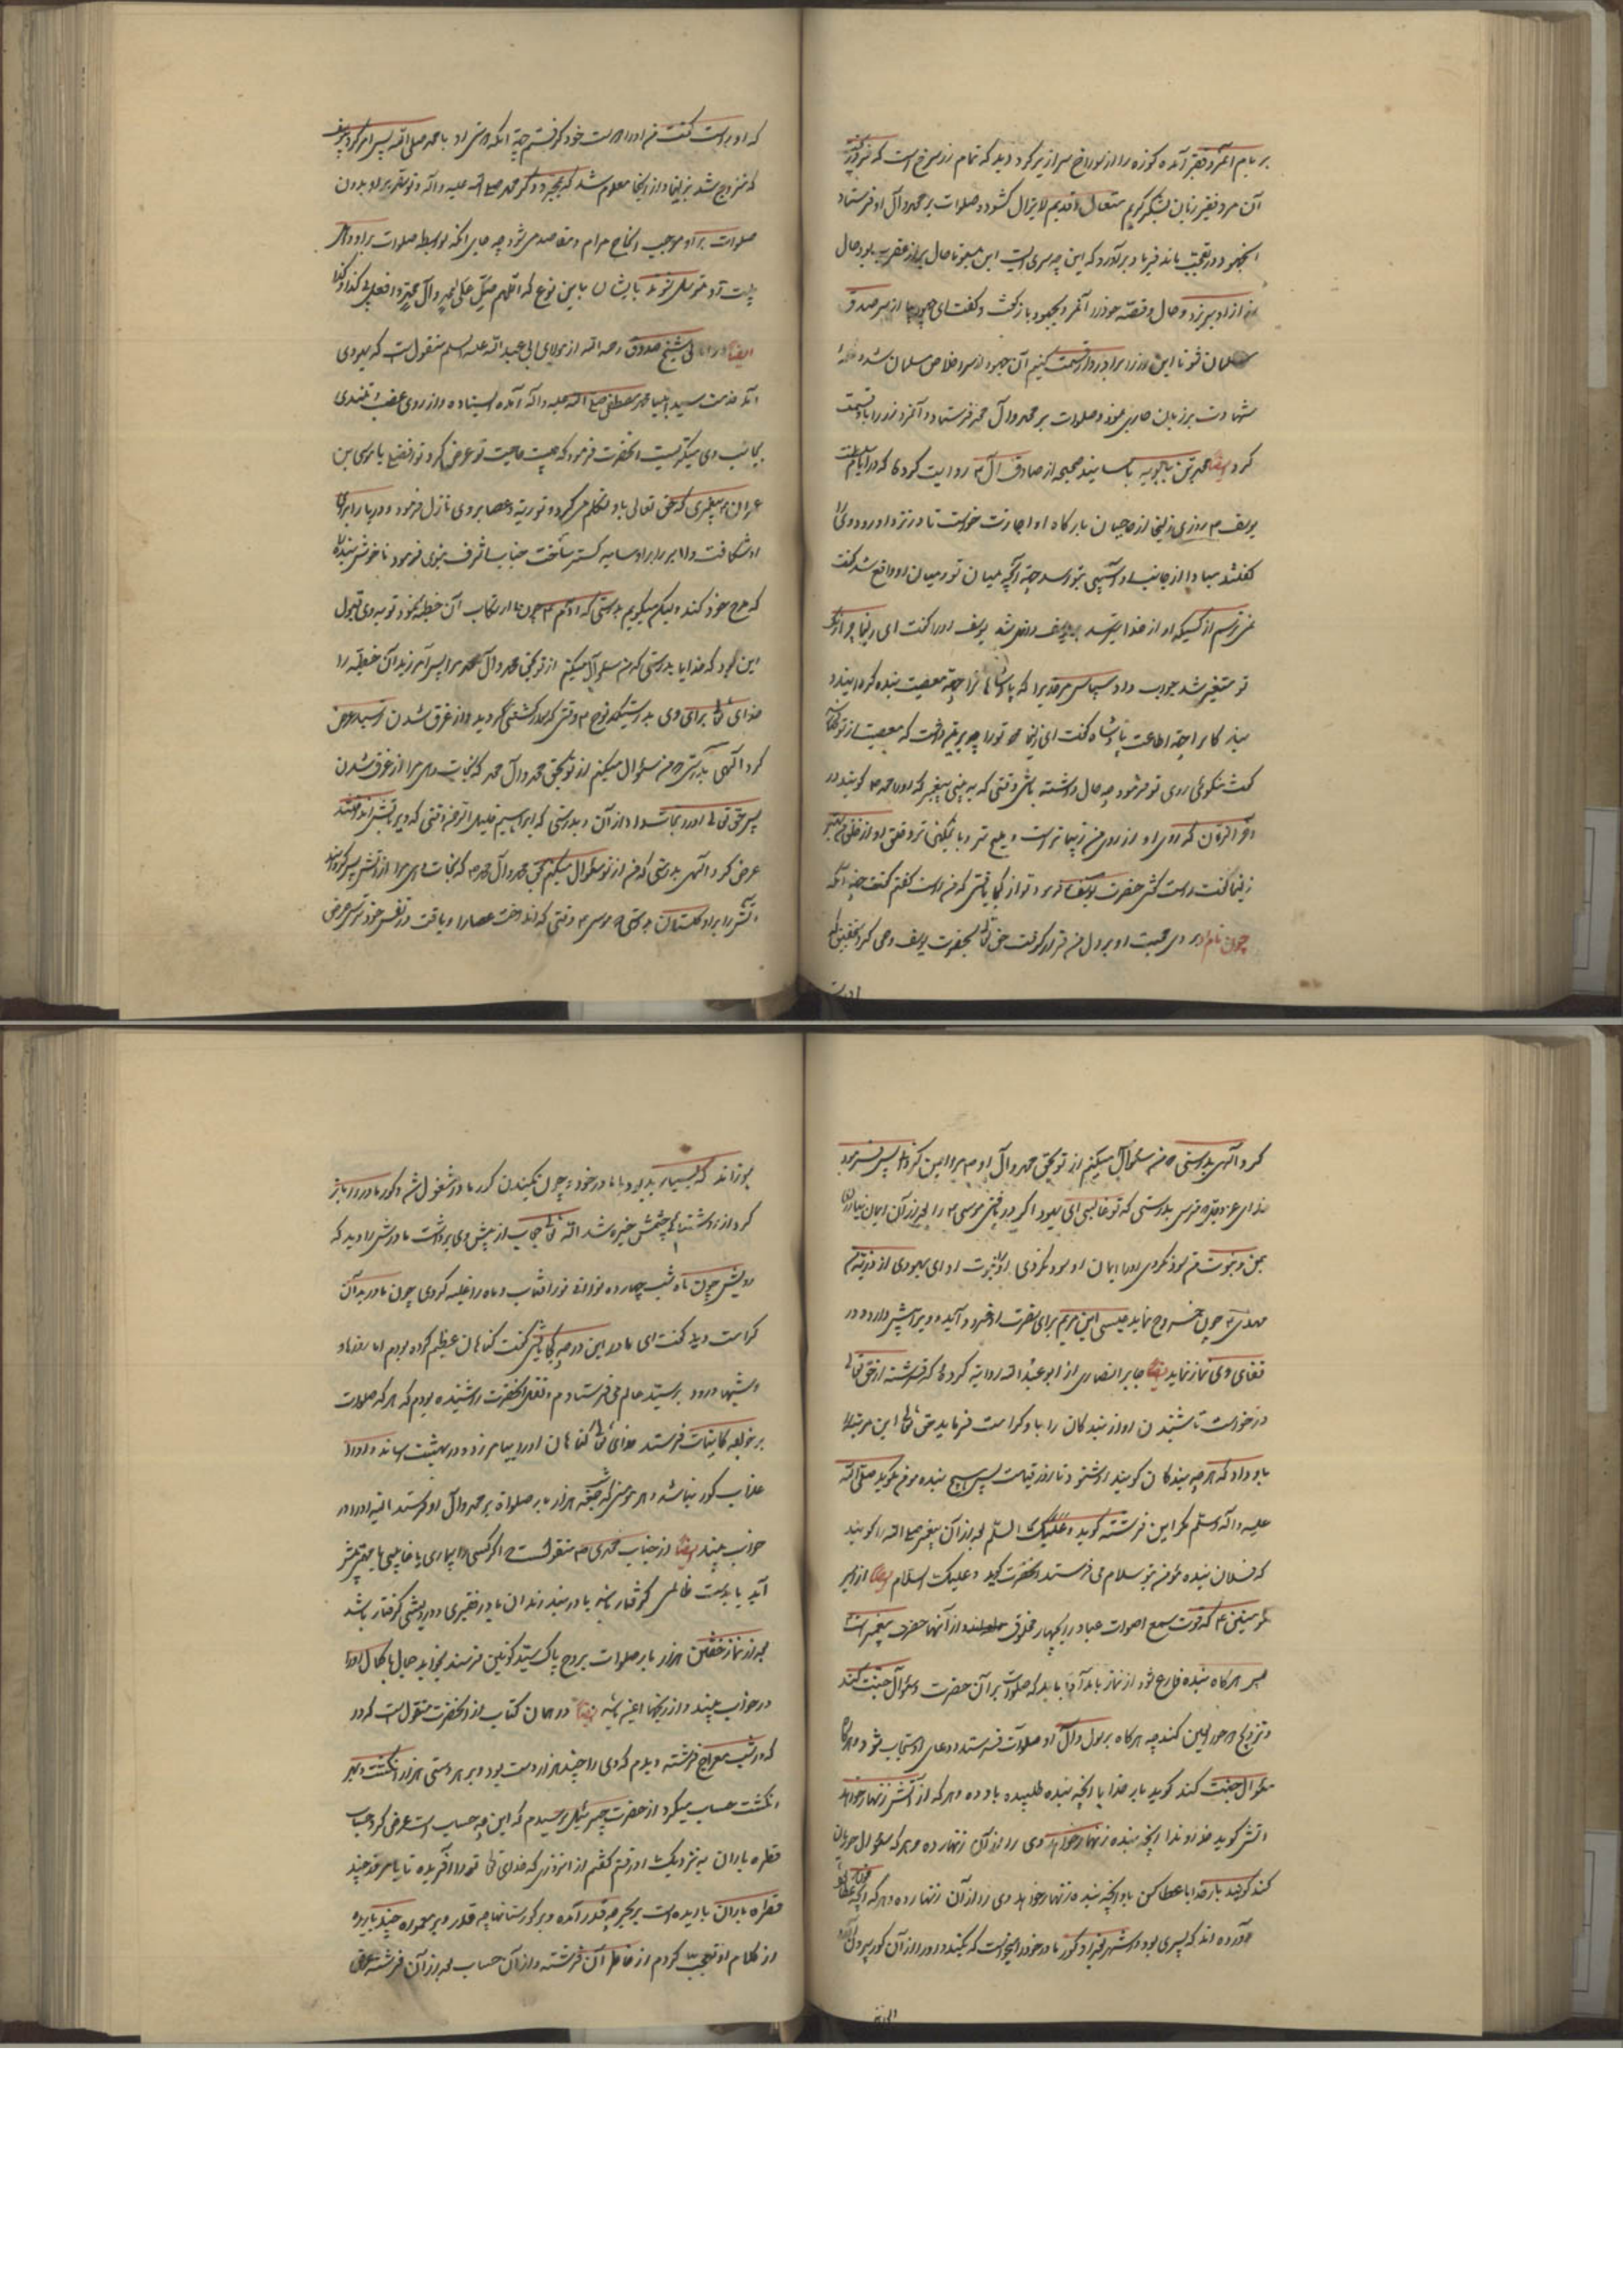 بر بام آمده کوزه را از سوراخ سرازیر کرد دید که تمام زر سرخ است که فرو ریخت
آن مرد فقیر زبان بشکر کریم متعال و قدیم لایزال کشود و صلوات بر محمد و آل او فرستاد
در تعجب ماند فریاد برآورد که این چه سری است این سبو تا حال پر از عقرب بود حال
زر از او میریزد و حال و قصه خود را آنمرد بجهود باز گفت و گفت ای جهود بیا از سر صدق
مسلمان شو تا این زر را برادروار قسمت کنیم آن جهود از سر اخلاص مسلمان شده
شهادت بر زبان جاری نمود و صلوات بر محمد و آل محمد فرستاد و آنمرد زر را با او قسمت
کرد ایضا محمد بن بابویه باسانید صحیحه از صادق آل م روایت کرده که در ایام سلطنت
یوسف م روزی زلیخا از حاجبان بارکاه او اجازت خواست تا در نزد او رود وی را
گفتند مبادا از جانب او آسیبی بتو رسد جهة آنچه میان تو و میان او واقع شد گفت
نمی ترسم از کسیکه او از خدا بترسد یوسف او را گفت ای زلیخا چرا رنگ
تو متغیر شد جواب داد سپاس مر خدیرا که پادشاهان را جهة معصیت بنده کردانید و
بندکان را جهة اطاعت پادشاه گفت ای زلیخا تو را چه بر این داشت که معصیت از تو
گفت نیکوئی روی تو فرمود چه حال داشته باشی وقتی که به بینی پیغمبری که او را محمد م گویند در
آخر الزمان که روی او از روی من زیباتر است و ملیح تر و با تمکین تر و خلق او از خلق من
زلیخا گفت راست گفتی حضرت یوسف فرمود تو از کجا یافتی که من راست گفتم گفت جهة آنکه
چون نام او بردی محبت او بر دل من قرار گرفت حق تعالی بحضرت یوسف وحی کرد بتحقیق که
او راست
که او راست گفت من او را دوست خود گرفتم جهة آنکه دوستی او با محمد صلی الله پس امر کرد یوسف
که تزویج شد بزلیخا و از اینجا معلوم شد که بمجرد ذکر محمد صلی الله علیه و آله و توسل بر او بدون
صلوات بر او موجب انجاح مرام و مقاصد می شود چه جای آنکه بوسیله صلوات بر او و آل
بیت او متوسل شوند بایشان باین نوع که اللهم صل علی محمد و آل محمد و افعل بی کذا و کذا
ایضا شیخ صدوق رحمه الله از مولای ابی عبدالله علیه السلم منقول است که یهودی
خدمت سید انبیا محمد مصطفی صلی الله علیه و آله آمده ایستاده و از روی غضب و تندی
بجانب وی مینگریست آنحضرت فرمود که چیست حاجت تو عرض کرد تو افضلی یا موسی بن
عمران پیغمبری که حق تعالی با او تکلم می کرد و توریة و عصا بر وی نازل فرمود و دریا را برای
او شکافت و ابر را بر او سایه گستر ساخت جناب اشرف نبوی فرمود ناخوش بنده را
که مدح خود کند و لیکن میگویم بدرستی که آدم م چون ارتکاب آن خطیه نمود توبه وی قبول
این بود که خدایا بدرستی که من سئوال میکنم از تو بحق محمد و آل محمد مرا پس آمرزید آن خطیه را
خدای تعالی برای وی بدرستیکه نوح م وقتی که سوار کشتی گردید و از غرق شدن ترسید عرض
کرد الهی بدرستی که من سئوال میکنم از تو بحق محمد و آل محمد که نجات دهی مرا از غرق شدن
پس حق تعالی او را نجات داد از آن و بدرستی که ابراهیم خلیل الرحمن وقتی که وی را بآتش انداختند
عرض کرد الهی بدرستی که من از تو سئوال میکنم بحق محمد و آل محمد که نجات دهی مرا از آتش پس گردانید
آتش را بر او گلستان بدرستی که موسی م وقتی که انداخت عصا را و یافت در نفس خود ترس عرض
کرد الهی بدرستی که من سئوال میکنم از تو بحق محمد و آل او مرا ایمن گردان پس فرمود
خدای عز و جل مترس بدرستی که تو غالبی ای یهود اگر در یافتی موسی م را بعد از آن ایمان نیاوردی
بمن و نبوت من سود نکردی او را ایمان او سود نکردی او را نبوت او ای یهودی از ذریه من
مهدی م چون خروج نماید عیسی ابن مریم برای نصرت او فرود آید و ویرا پیش دارد و در
قفای وی نماز نماید ایضا جابر انصاری از ابو عبدالله روایة کرده که فرشته از حق تعالی
درخواست تا شنیدن آواز بندکان را باو کرامت فرماید حق تعالی این مرتبه را
باو داد که هر چه بندکان کویند او شنود تا روز قیامت پس هیچ بنده مؤمن نکوید صلی الله
علیه و آله و سلم مکر این فرشته کوید و علیک السلم بعد از آن پیغمبر صلی الله را کوید
که فلان بنده مؤمن بتو سلام می فرستد آنحضرت کوید و علیک السلام ایضا از امیر
المؤمنین م که قوت سمع اصوات عباد را بچهار مخلوق دادند از آنها حضرت پیغمبر است
پس هر گاه بنده فارغ شود از نماز باید که صلوات بر آن حضرت و سئوال جنت کند
و تزویج حور العین کند چه هر گاه بر رسول و آل او صلوات فرستد دعای او مستجاب شود و هر گاه
سئوال جنت کند گوید بار خدایا آنچه بنده طلبیده باو ده و هر که از آتش زنهار خواهد
آتش گوید خداوندا آنچه بنده زنهار خواهد وی را از آن زنهار ده و هر که سئوال حوریان
کند گویند بار خدایا عطا کن باو آنچه بنده زنهار خواهد وی را از آن زنهار ده و هر که آنچه
آورده اند که پسری بود در شهر بغداد گور مادر خود را میخواست که بکند و او را از آن گور بیرون آرد
بسوزاند که بسیار بد بود با مادر خود چون بکندن گور مادر مشغول شد و گور مادر را باز
کرد از روشنائی چشمش خیره شد الله تعالی حجاب از پیش وی برداشت مادرش را دید که
رویش چون ماه شب چهارده نور آفتاب و ماه را غلبه کردی چون مادر بد آن
کرامت دید گفت ای مادر این درجه کجا یافتی گفت گناهان عظیم کرده بودم اما روزها و
شبها درود بر سید عالم می فرستادم و از آنحضرت شنیده بودم که هر که صلوات
بر خواجه کاینات فرستد خدای تعالی گناهان او را بیامرزد و در بهشت رساند و او را
عذاب گور نباشد و هر مؤمنی که شب جمعه هزار بار صلواة بر محمد و آل او فرستد البته او را در
خواب بیند ایضا از جناب محمدی م منقولست اگر کسی را بیماری یا غایبی یا مهمی پیش
آید یا بدست ظالمی گرفتار باشد یا در بند زندان یا در فقیری و درویشی گرفتار باشد
بعد از نماز خفتن هزار بار صلوات بر روح پاک سید کونین فرستد بخوابد جمال با کمال او را
در خواب بیند و از رنجها ایمن باشد ایضا در همان کتاب از آنحضرت منقول است که در
که در شب معراج فرشته دیدم که وی را چند هزار دست بود و بر هر دستی هزار انگشت و بهر
انگشت حساب میکرد از حضرت جبرئیل پرسیدم که این چه حساب است عرض کرد حساب
قطره باران به نزدیک او رفتم گفتم از آنروزی که خدای تعالی تو را آفریده تا باین روز چند
قطره باران باریده است بر بحر چه قدر آمده و بر کورستانها چه قدر و بر معموره چند باریده
از کلام او تعجب کردم از خاطر آن فرشته و از آن حساب بعد از آن فرشته عرض